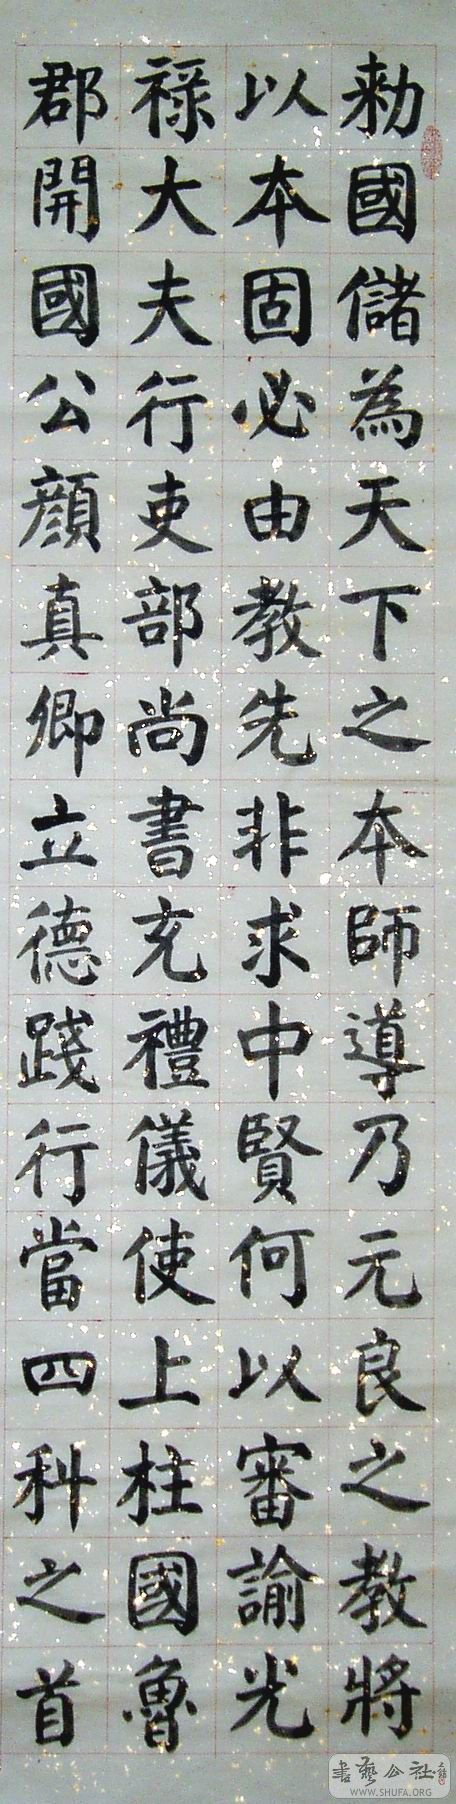 勑國儲為天下之本師導乃元良之教將
以本固必由教先非求中賢何以審諭光
祿大夫行吏部尚書充禮儀使上柱國魯
郡開國公顏真卿立德踐行當四科之首
書藝公社
WWW.SHUFA.ORG